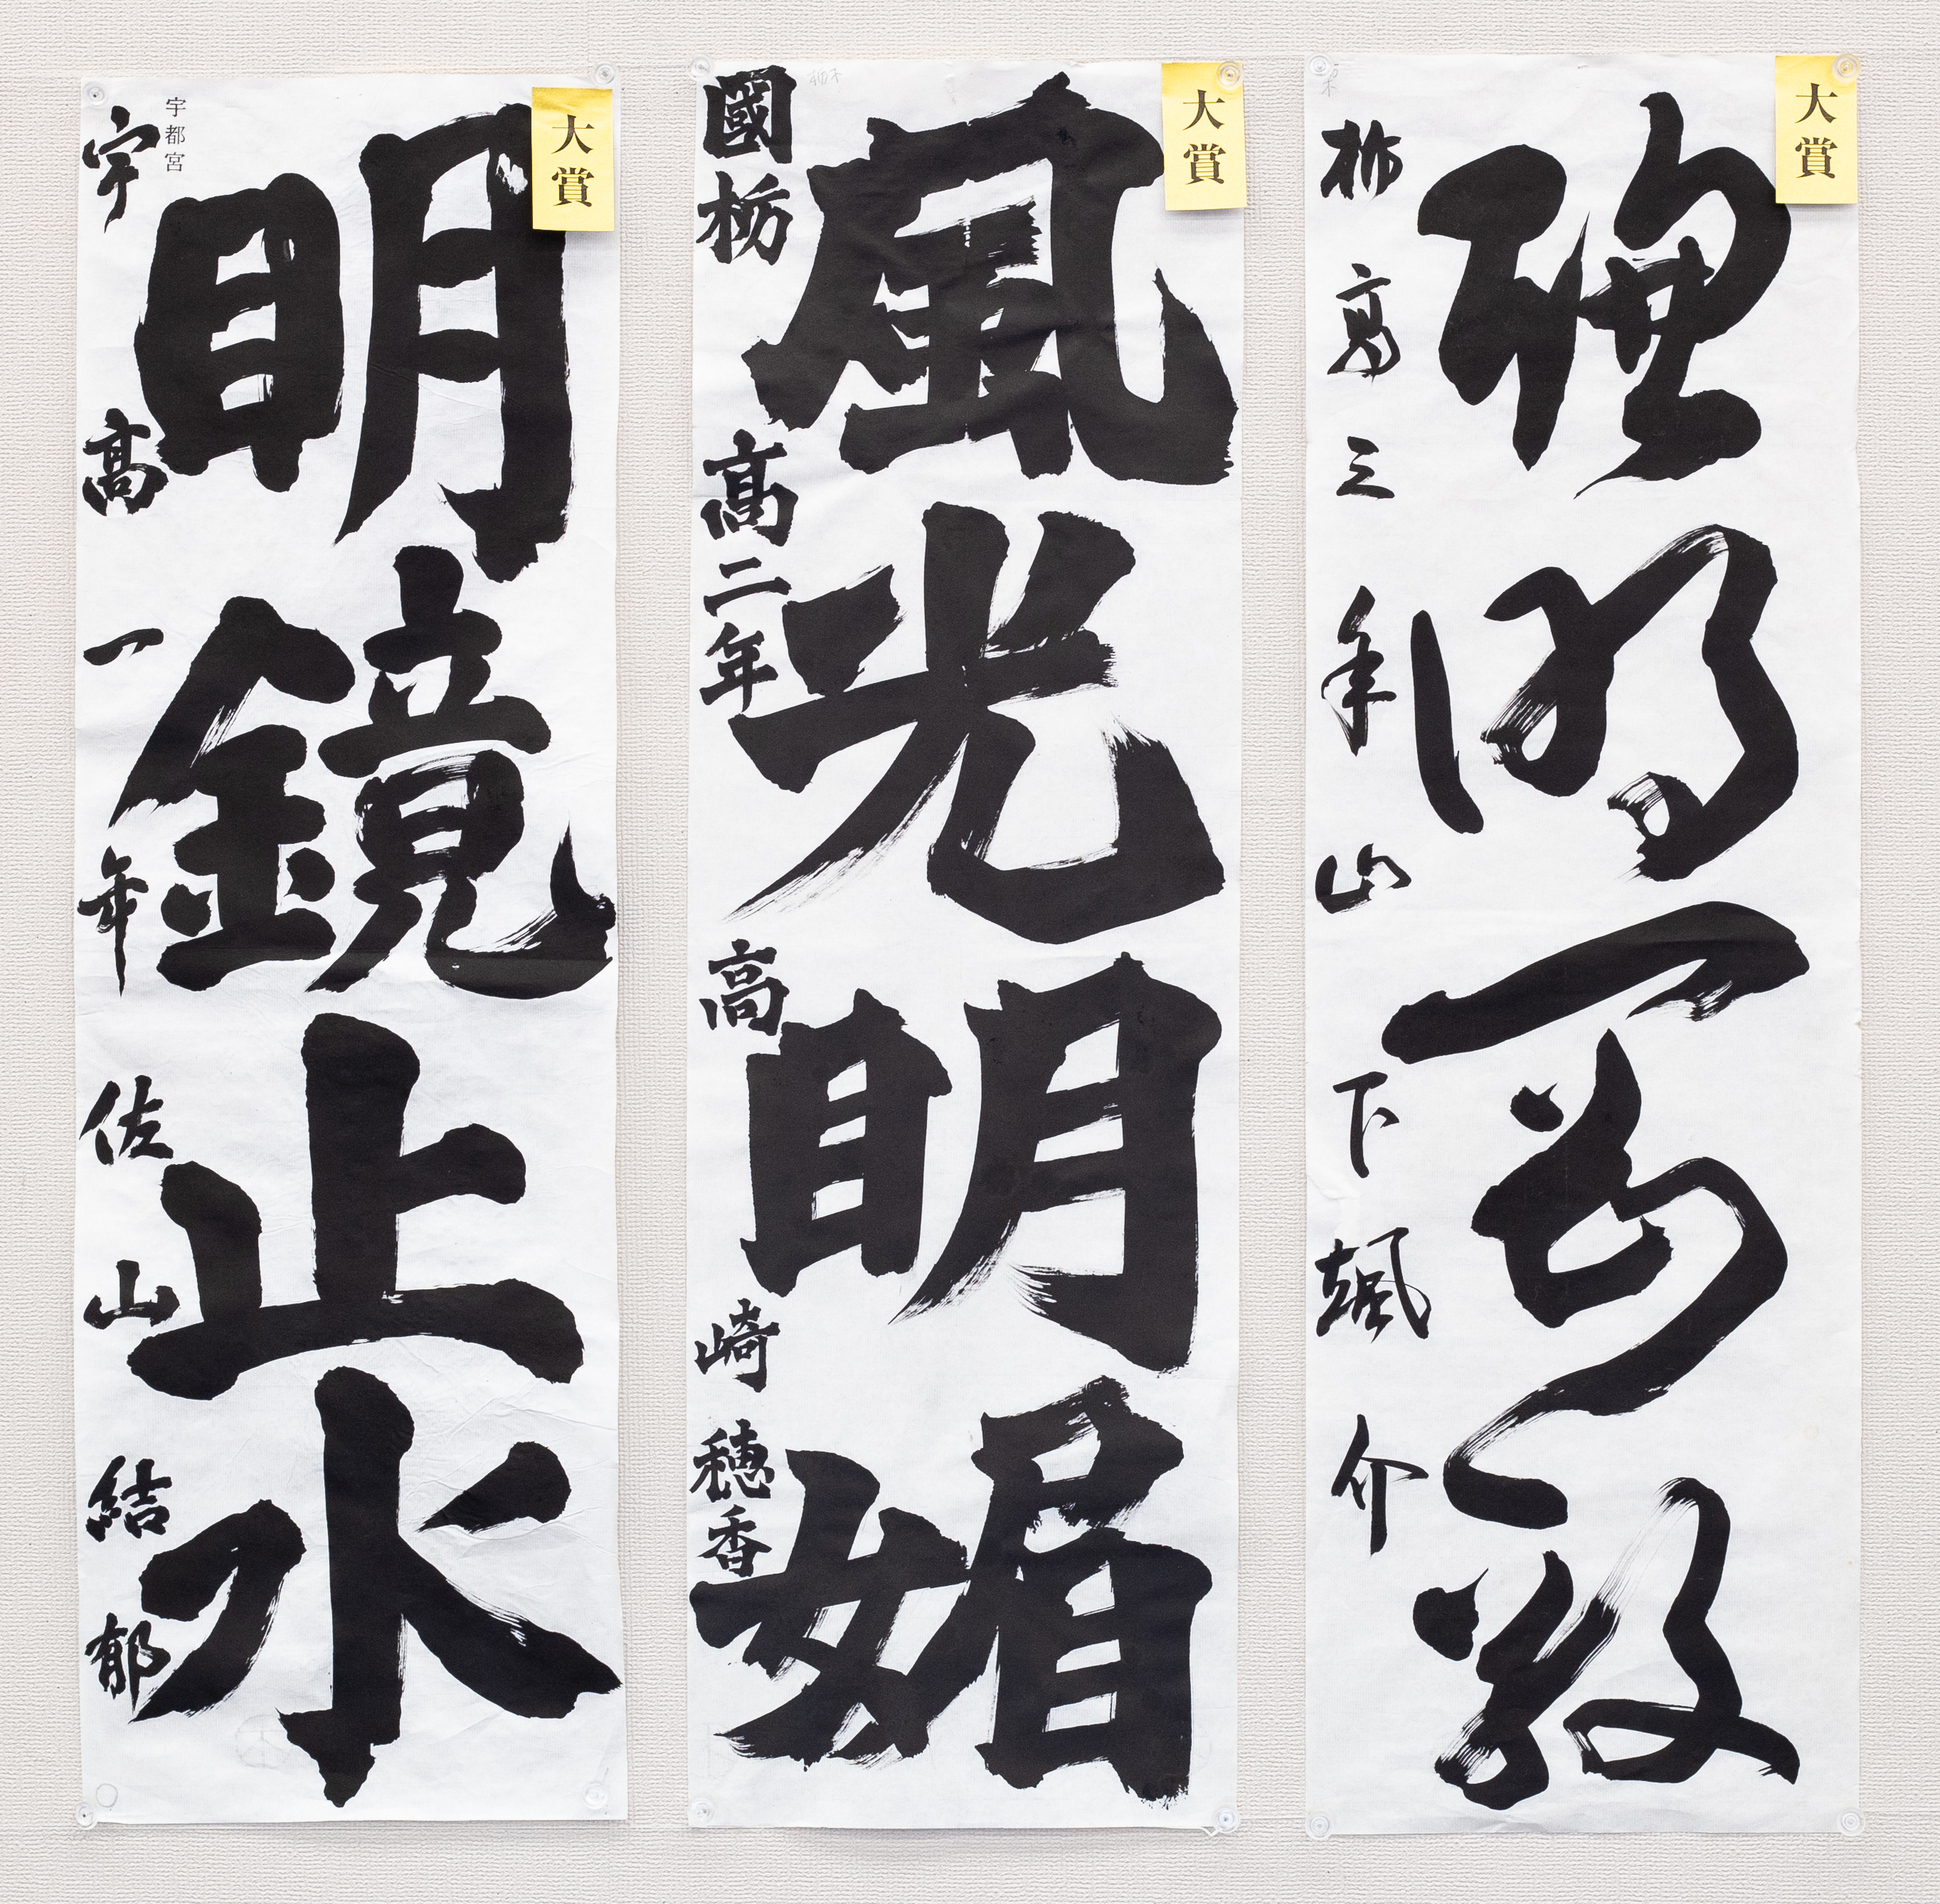 大賞
栃高三年 山下颯介
大賞
風光明媚
國栃 高二年 高崎穂香
大賞
明鏡止水
宇都宮
宇高一年 佐山結郁